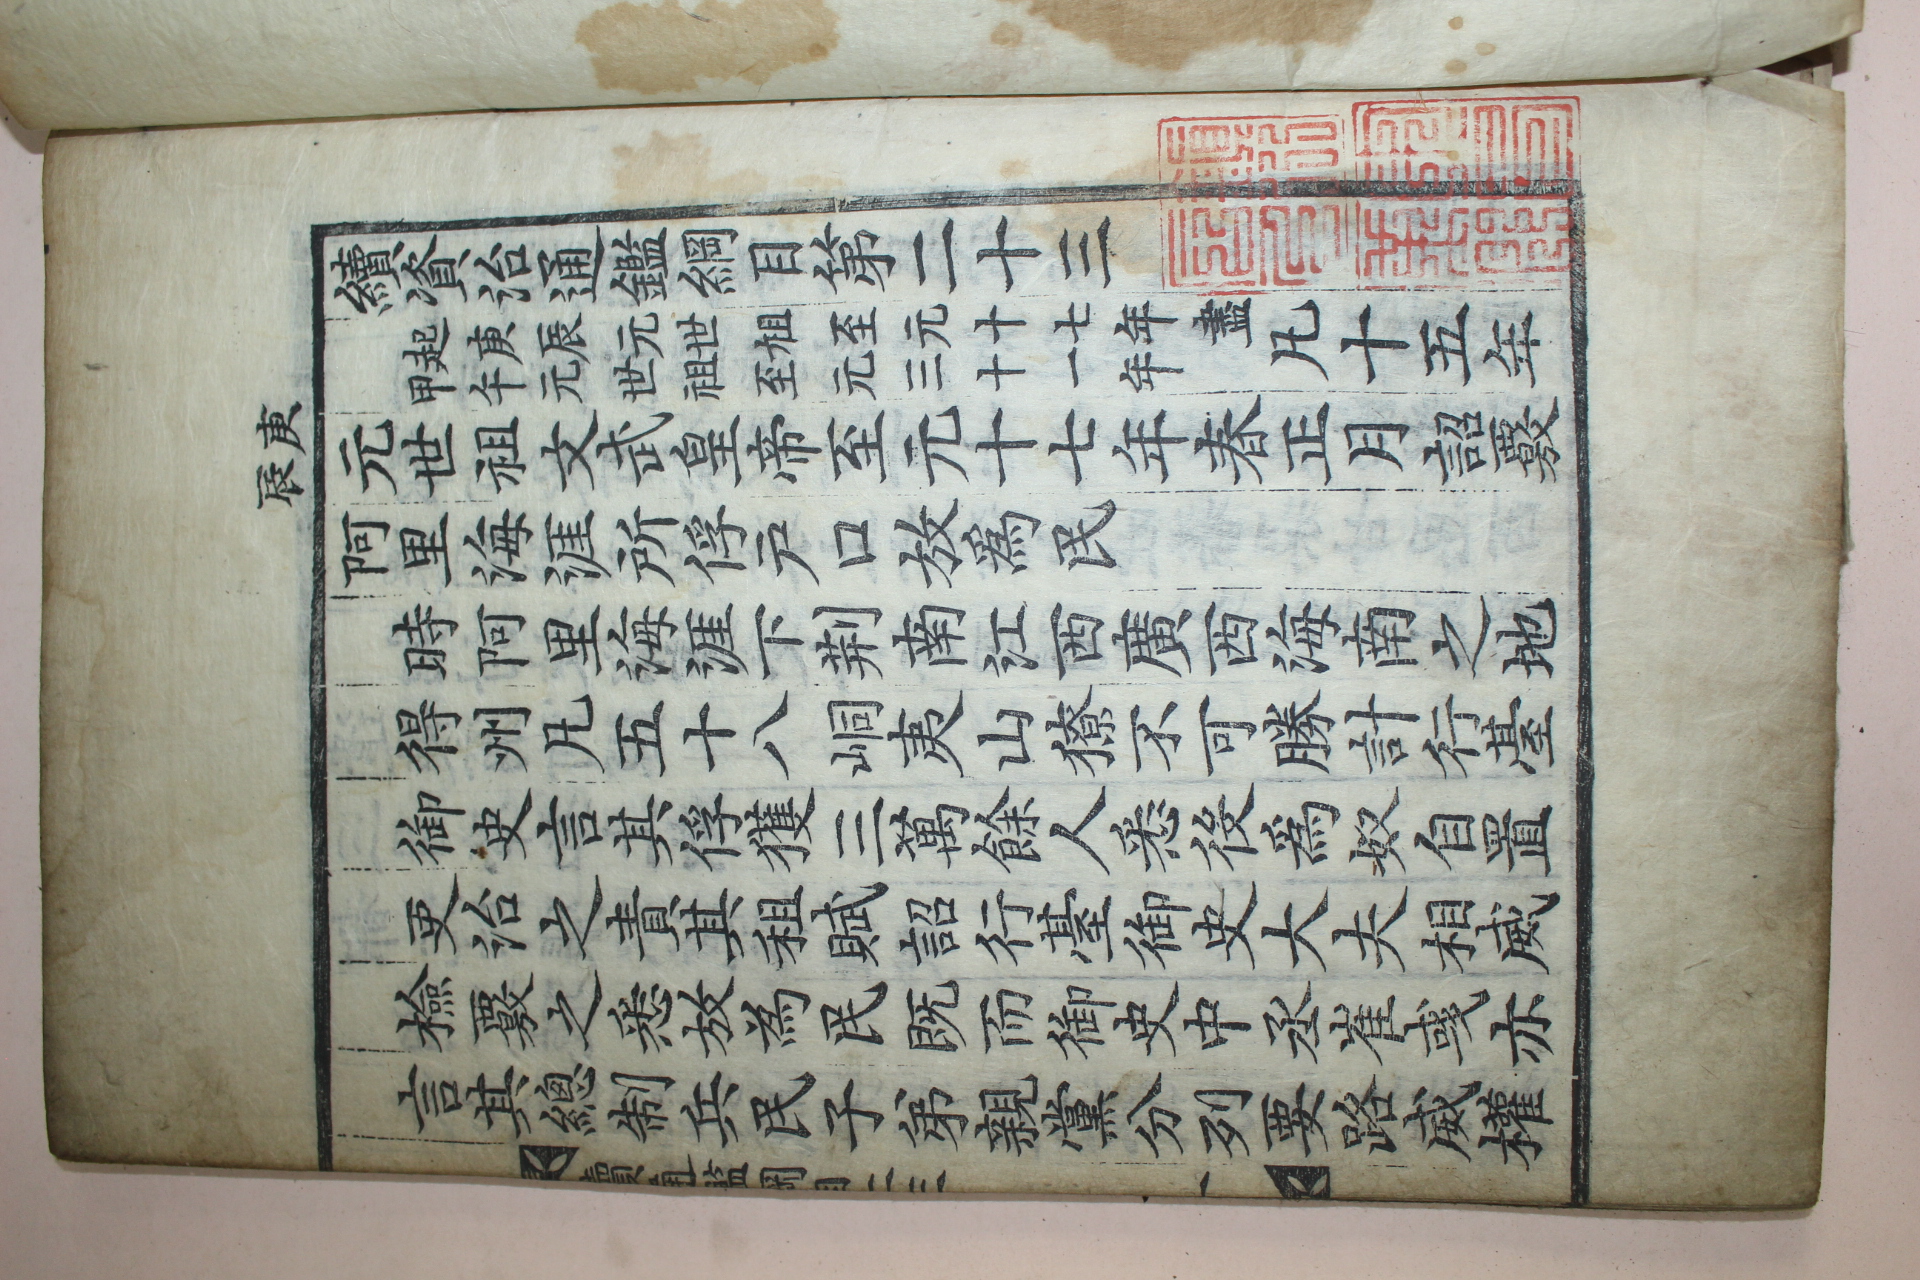 續資治通鑑綱目第二十三
起庚辰元世祖至元十七年
甲午元世祖至元三十一年
盡凡十五年
庚辰
元世祖文武皇帝至元十七年春正月詔覈
阿里海涯所俘戸口放爲民
時阿里海涯下荆南江西廣西海南之地
得州凡五十八峒夷山獠不可勝計行臺
御史言其俘獲三萬餘人悉役爲奴自置
吏治之責其租賦詔行臺御史大夫相威
檢覈之悉放為民既而御史中丞崔彧亦
言其總制兵民子弟親黨分列要路威權
續通鑑綱目二三 一